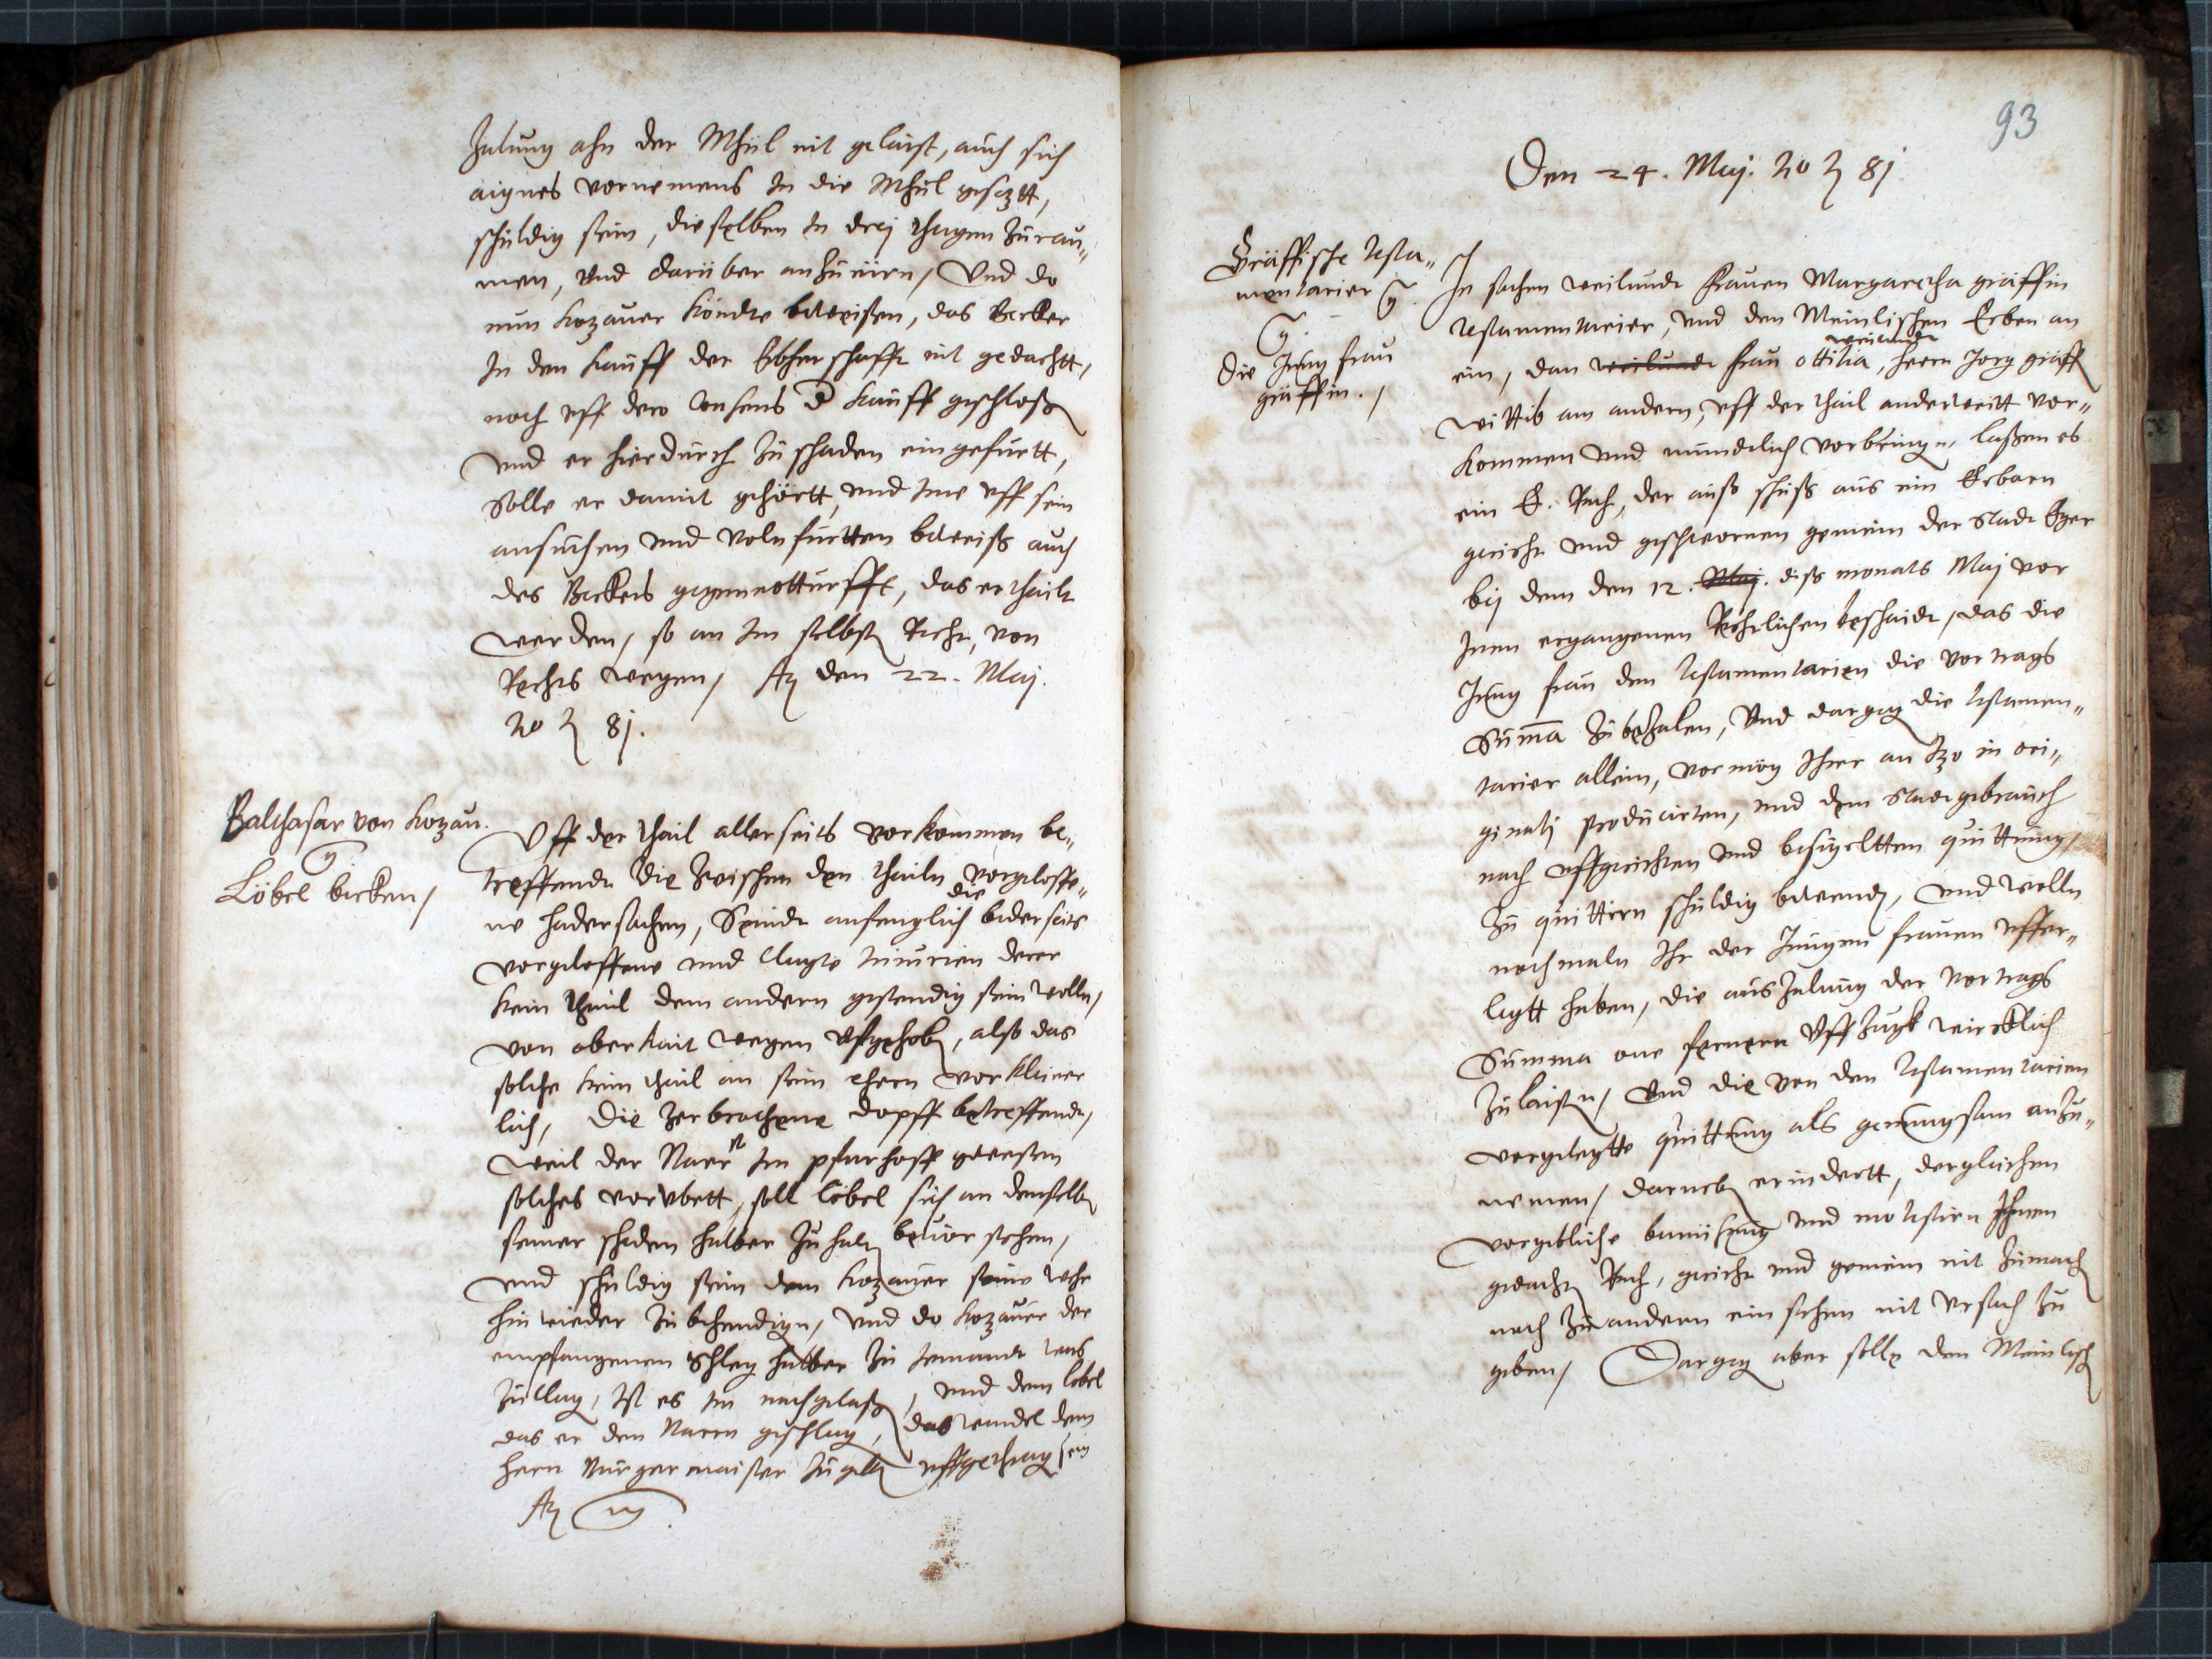 Zalung ahn der Mhul nit gelaist, auch sich
aignes vornemens In die Mhul gesetzt,
schuldig sein, dieselben In drej thagen zurau„
men, und darüber anzurürn, Und do
nun Kozauer köndte beweisen, das Becker
In den kauff der Erbherschafft nit gedacht,
noch uff dero Consens d kauff geschloß
und er hierdurch zu schaden eingefurtt,
Solle er damit gehörtt, und Ime uff sein
ansuchen und volnfurtten beweiß auch
des Beckers gegennotturfft, das erthailt
werden, so an Im selbst Recht, von
Rechts wegen, Ag den 22. Maj.
ao 81.
Balthasar von Kozau.
Löbel becken,
Uff der thail allerseits vorkommen be„
treffendt die zwischen den thailn vorgeloffe„
ne hadersachen, Seindt anfenglich die bederseits
vorgeloffene und Clagte Iniurien derer
kein thail dem andern gestendig sein wolln,
von oberkait wegen uffgehobn, also das
solche keim thail an sein ehern vorklainer
lich, Die zerbrochene dopff betreffendt,
weil der Narr Im pfarhoff gewesen
solches vorubett, soll Löbel sich an demselbn
seiner schaden halber zuhaltn bevor stehen,
und schuldig sein dem Kozauer seine wehr
hinwieder zubehendign, Und do Kozauer der
empfangenen Schleg halber zu Iemandt was
zuclag, Ist es Im nachgelaßn, und dem Löbel
das er den Narrn geschlagn, das wandel dem
hern Burgermaister zugebn uffgethragn sein
Ag
93
Den 24. Maj. ao 81
Gräffische Testa„
mentarier
Die Jung frau
gräffin.
In sachen weilundt Frauen Margaretha gräffin
Testamentarier, und den Meinlischen Erben an
ein, dan weilundt frau Ottilia, weilundt herrn Jorg gräff
wittib am andern, uff der thail anderweitt vor„
kommen und mundtlich vorbringn, laßen es
ein E. Rath, der auß schuß aus ein Erbarn
gericht und geschwornen gemein der Stadt Eger
bej dem den 12. Maj. diß monats Maj vor
Inen ergangenen Rethlichen beschaidt, das die
Jung frau den Testamentarien die vortrags
Summa zubezalen, Und dargegn die Testamen„
tarier allein, vormög Ihrer an Itzo in ori„
ginalj producirten, und dem Stadtgebrauch
nach uffgerichten und besigeltten quittung,
zu quittirn schuldig bewendn, und wolln
nochmaln Ihr der Jungen frauen uffer„
legtt haben, die aus Zalung der vortrags
Summa one fernern Uffzugk wircklich
zulaistn, Und die von den Testamentarien
vorgelegtte quittung als genungsam anzu„
nemen, darnebn erindertt, dergleichen
vorgebliche bemühung und molestirn Ihnen
gedachtn Rath, gericht und gemein nit zumachn
noch zu andern einsehen nit ursach zu
geben, Dargegn aber solle den Meinlischn